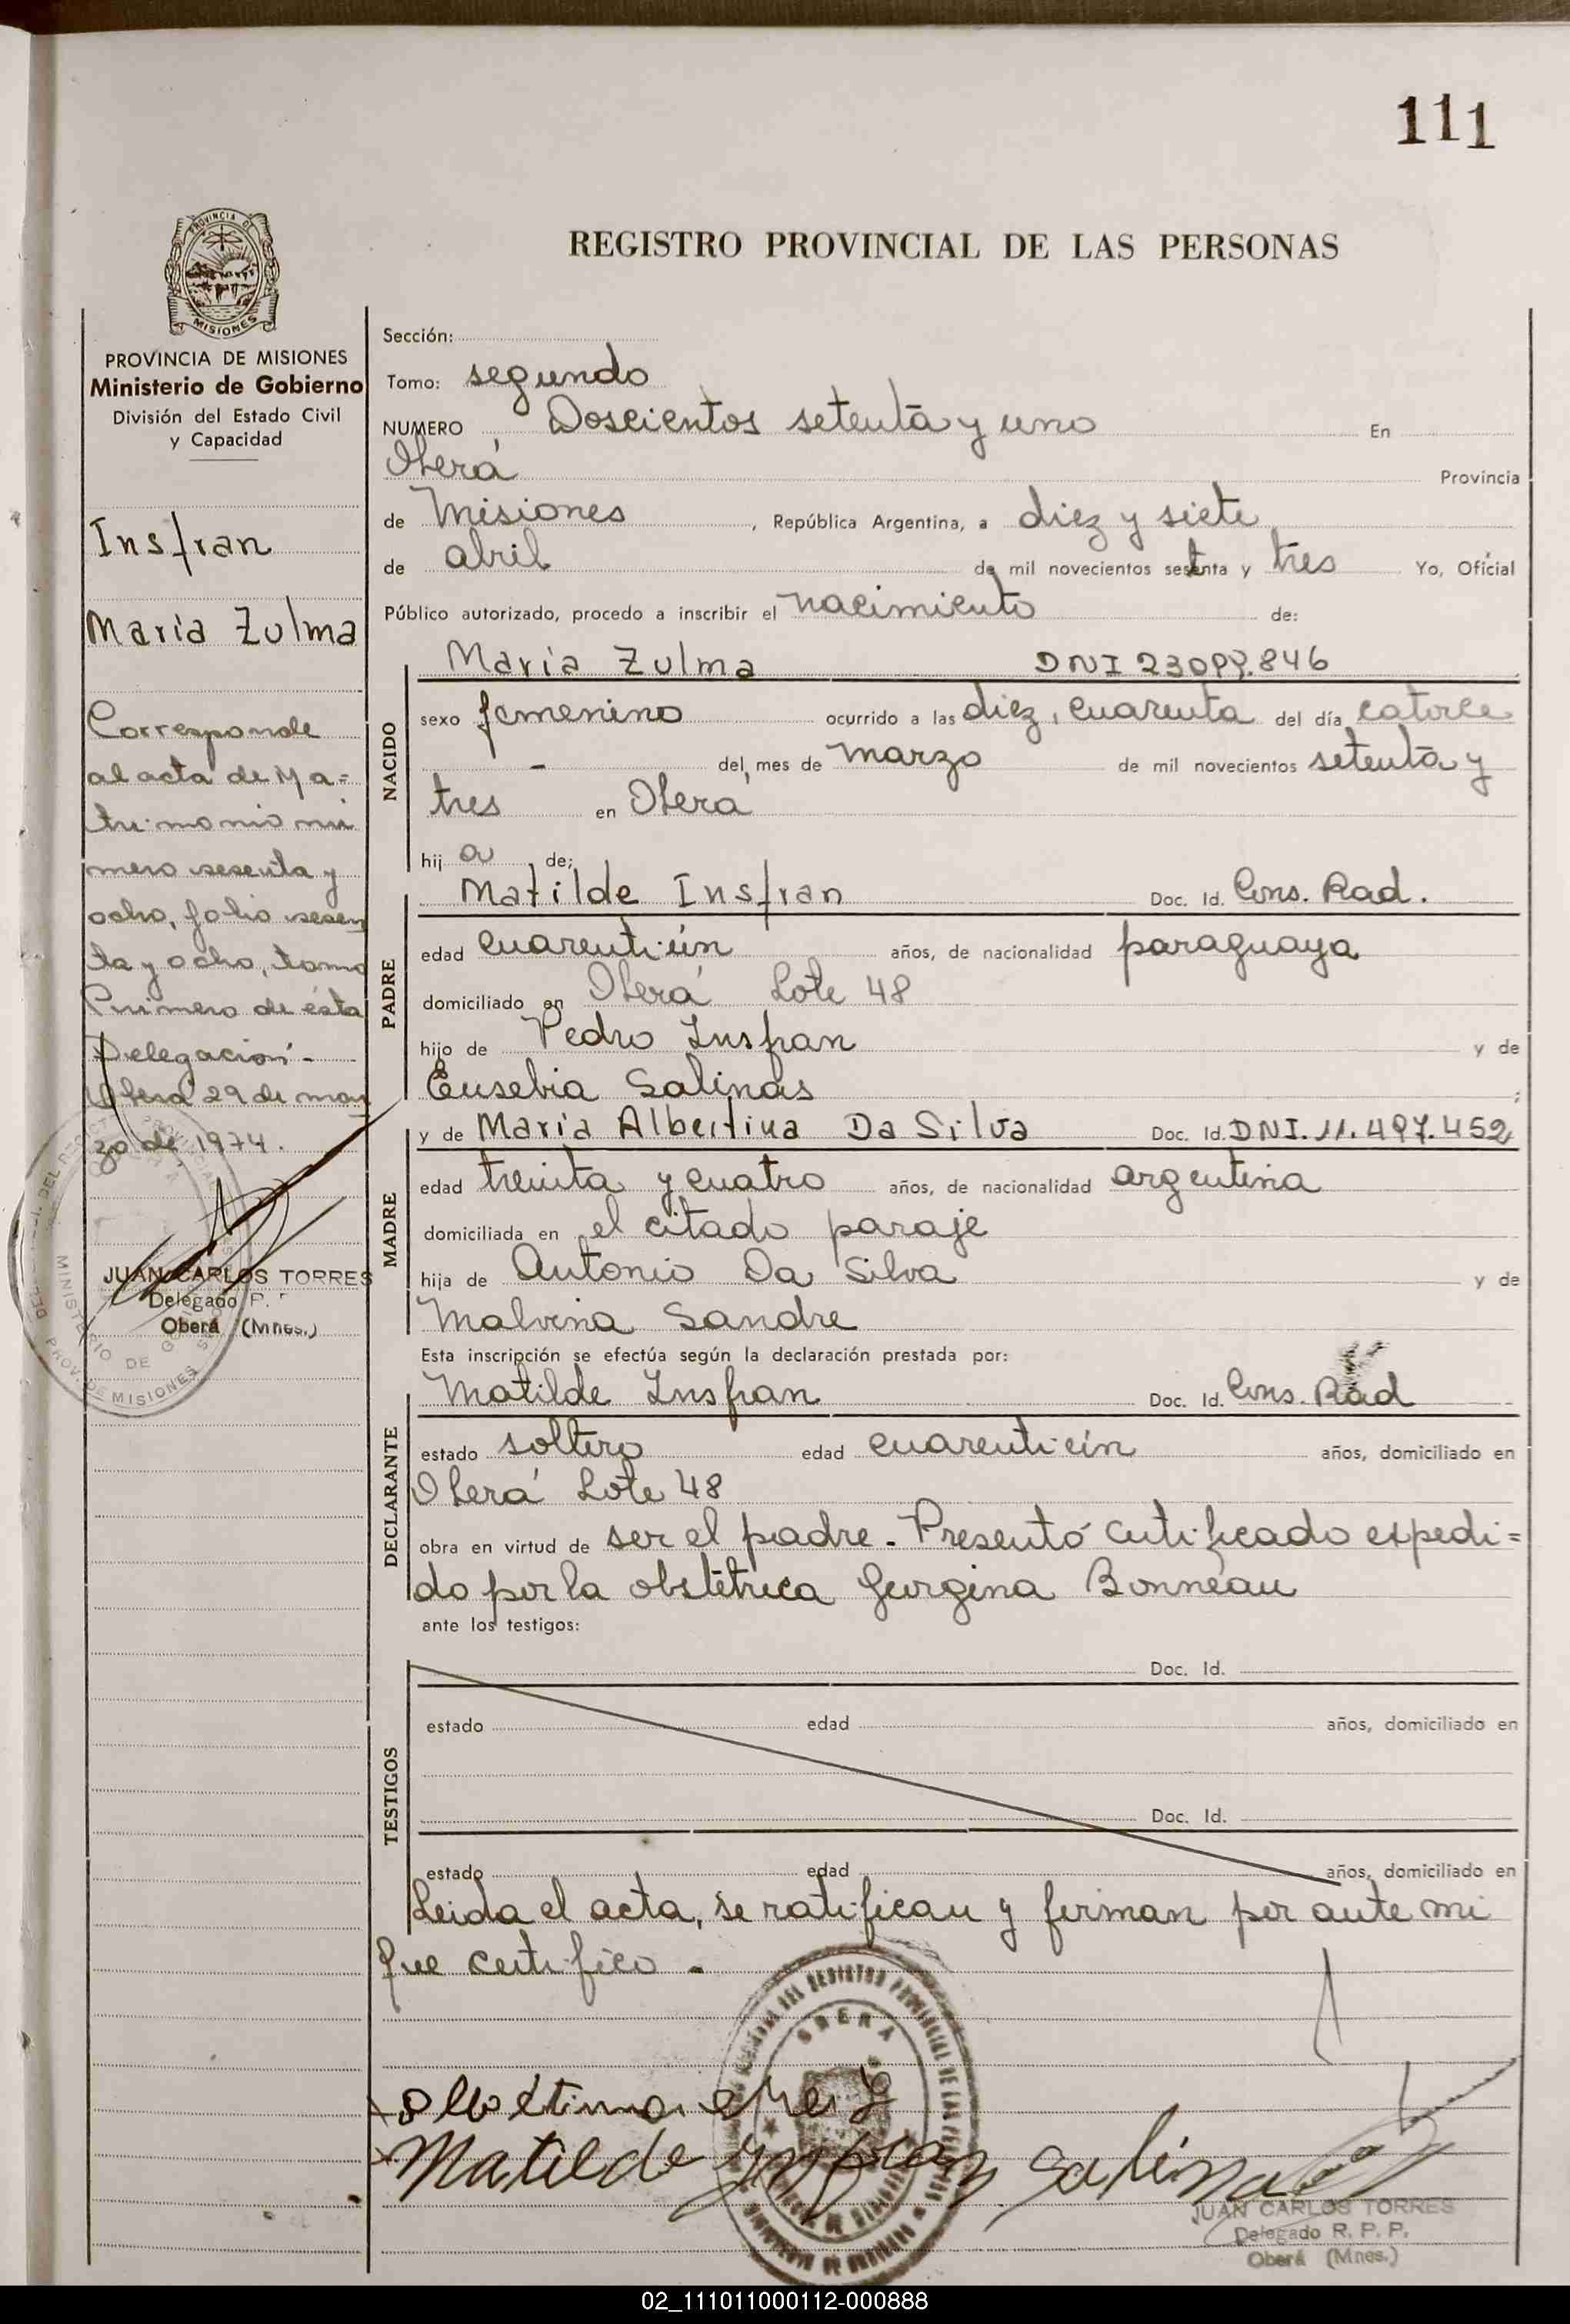 111
REGISTRO PROVINCIAL DE LAS PERSONAS
PROVINCIA DE
MISIONES
PROVINCIA DE MISIONES
Ministerio de Gobierno
División del Estado Civil
y Capacidad
Insfran
Maria Zulma
Corresponde
al acta de Ma=
trimonio nú
mero sesenta y
ocho, folio sesen
ta y ocho, tomo
Primero de ésta
Delegación.-
Oberá 29 de mar
zo de 1974.
JUAN CARLOS TORRES
Delegado P.
Oberá (Mnes.)
MINISTERIO DE
PROV. DE MISIONES
Sección:
Tomo: segundo
NUMERO Doscientos setenta y uno En
Oberá Provincia
de Misiones, República Argentina, a diez y siete
de abril de mil novecientos setenta y tres Yo, Oficial
Público autorizado, procedo a inscribir el nacimiento de:
NACIDO
Maria Zulma DNI 23.099.846
sexo femenino ocurrido a las diez, cuarenta del día catorce
- del mes de marzo de mil novecientos setenta y
tres en Oberá
hij a de;
PADRE
Matilde Insfran Doc. Id. Cons. Rad.
edad cuarentiún años, de nacionalidad paraguaya
domiciliado en Oberá Lote 48
hijo de Pedro Insfran y de
Eusebia Salinas ;
MADRE
y de Maria Albertina Da Silva Doc. Id. DNI. 11.497.452
edad treinta y cuatro años, de nacionalidad argentina
domiciliada en el citado paraje
hija de Antonio Da Silva y de
Malvina Sandre
Esta inscripción se efectúa según la declaración prestada por:
DECLARANTE
Matilde Insfran Doc. Id. Cons. Rad
estado soltero edad cuarentiún años, domiciliado en
Oberá Lote 48
obra en virtud de ser el padre. Presentó certificado expedi=
do por la obstétrica Georgina Bonneau
ante los testigos:
TESTIGOS
Doc. Id.
estado edad años, domiciliado en
Doc. Id.
estado edad años, domiciliado en
Leida el acta, se ratifican y firman por ante mi
que certifico.-
OBERA
Matilde Insfran Salinas
JUAN CARLOS TORRES
Delegado R. P. P.
Oberá (Mnes.)
02_111011000112-000888